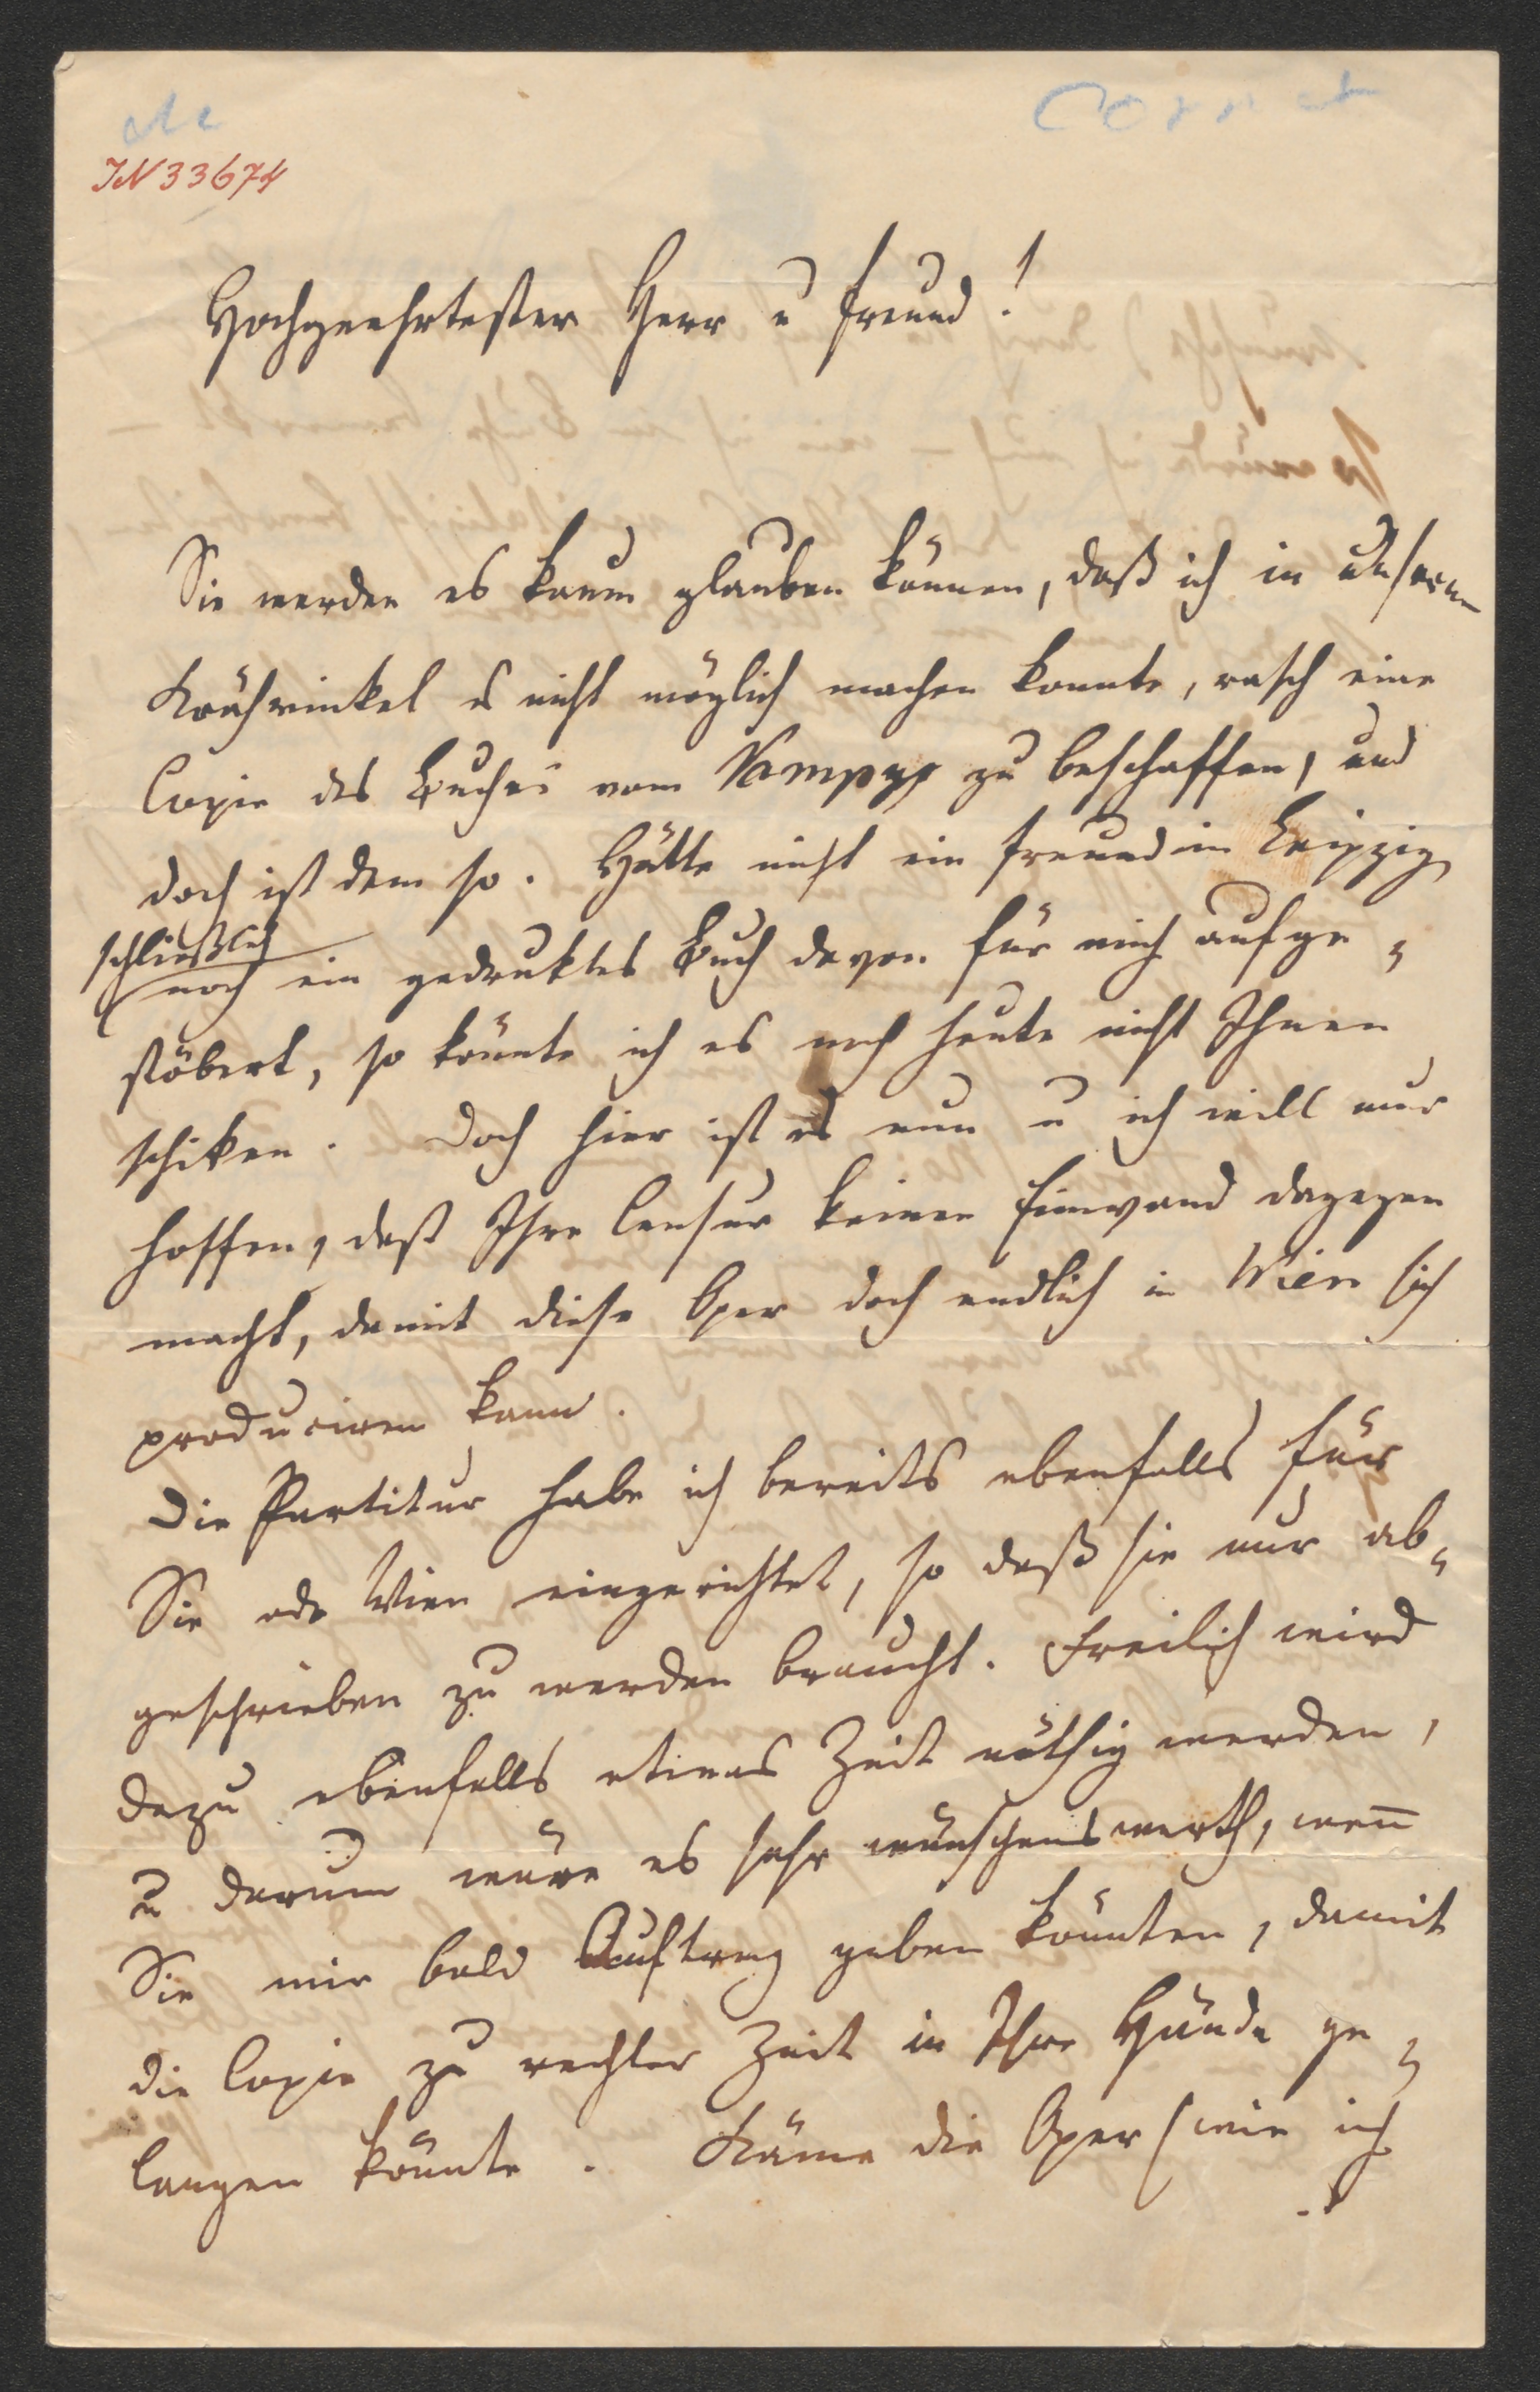 IN 33674
Hochgeehrtester Herr u Freund!
Sie werden es kaum glauben können, daß ich in unserm
Krähwinkel es nicht möglich machen konnte, rasch eine
Copie des Buches vom Vampyr zu beschaffen, und
doch ist dem so. Hätte nicht ein Freund in Leipzig
schließlich
noch ein gedruktes Buch davon für mich aufge-
stöbert, so könnte ich es noch heute nicht Ihnen
schiken. Doch hier ist es nun u ich will nur
hoffen, daß Ihre Censur keinen Einwand dagegen
macht, damit diese Oper doch endlich in Wien sich
produciren kann.
Die Partitur habe ich bereits ebenfalls für
Sie ode Wien eingerichtet, so daß sie nur ab-
geschrieben zu werden braucht. Freilich wird
dazu ebenfalls etwas Zeit nöthig werden,
u darum wäre es sehr wünschenswerth, wenn
Sie mir bald Auftrag geben könnten, damit
die Copie zu rechter Zeit in Ihre Hände ge-
langen könnte. Käme die Oper (wie ich